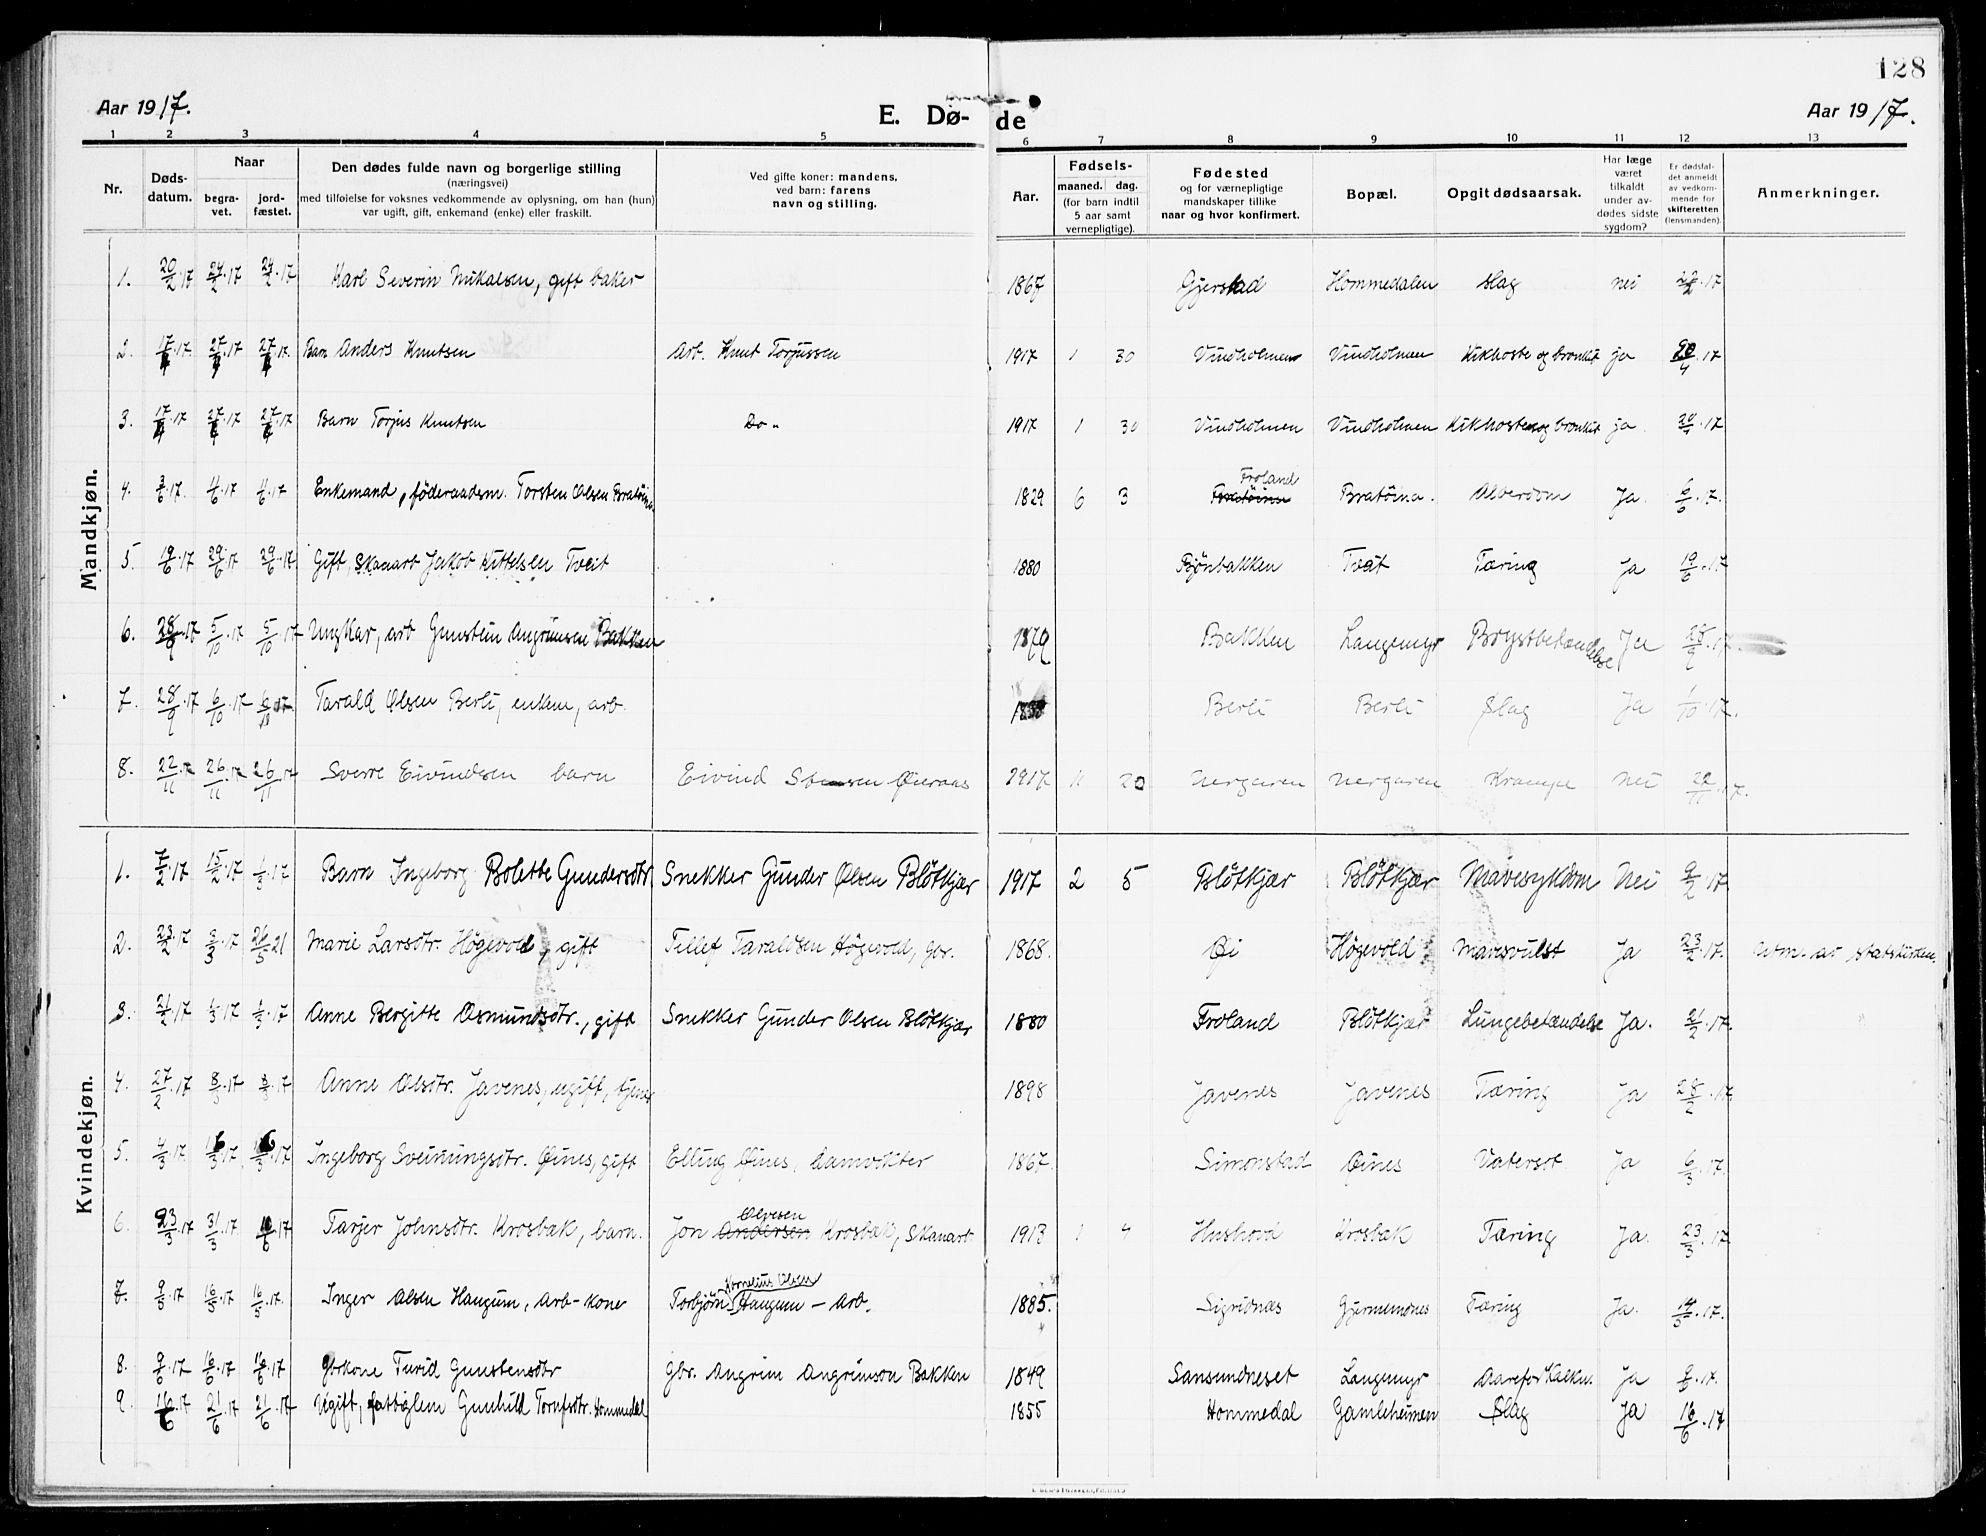 128
Aar 1917.
E. Dø-de
Aar 1917.
1 2 3 4 5 6 7 8 9 10 11 12 13
Nr.
Døds-datum.
Naar
begra-vet.
jord-fæstet.
Den dødes fulde navn og borgerlige stilling
(næringsvei)
med tilføielse for voksnes vedkommende av oplysning, om han (hun)
var ugift, gift, enkemand (enke) eller fraskilt.
Ved gifte koner: mandens,
ved barn: farens
navn og stilling.
Aar.
Fødsels-
maaned. dag.
(for barn indtil
5 aar samt
vernepligtige).
Fødested
og for værnepligtige
mandskaper tillike
naar og hvor konfirmert.
Bopæl.
Opgit dødsaarsak.
Har læge
været
tilkaldt
under av-
dødes sidste
sygdom?
Er dødsfal-
det anmeldt
av vedkom-
mende for
skifteretten
(lensmanden).
Anmerkninger.
Mandkjøn.
1. 20/2 17 24/2 17 24/2 17 Karl Severin Mikalsen, gift baker 1867 Gjerstad Hommedalen Slag nei 22/2 17
2. 17/4 17 27/4 17 27/4 17. Barn Anders Knutsen Arb. Knut Torjussen 1917 1 30 Vindholmen Vindholmen Kikhoste og bronkit ja 20/4 17
3. 17/4 17 27/4 17 27/4 17 Barn Torjus Knutsen Do " 1917 1 30 Vindholmen Vindholmen Kikhoste og bronkit ja 20/4 17
4. 3/6 17. 4/6 17 4/6 17 Enkemand, föderaadsm. Torsten Olsen Bratöina 1829 6 3 Froland Bratöina. Alderdom Ja. 6/6 17.
5. 19/6 17 29/6 17 29/6 17 Gift, Skanart Jakob Kittelsen Tveit 1880 Bjönbakken Tveit Tæring Ja 19/6 17
6. 28/9 17 5/10 17 5/10 17 Ungkar, arb Gunstein Angrimsen Bakken 1879 Bakken Langemyr Brystbetændelse Ja 28/9 17.
7. 28/9 17 6/10 17 6/10 17 Tarald Olsen Berli, enkem, arb. Berli Berli Slag Ja 1/10 17.
8. 22/11 17 26/11 17 26/11 17 Sverre Eivindsen barn Eivind Stensen Øieraas 1917 11 20 Nergaren Nergaren Krampe nei 22/11 17.
Kvindekjøn.
1. 7/2 17 15/2 17 1/3 17 Barn Ingeborg Bolette Gundersdtr. Snekker Gunder Olsen Blötkjær 1917 2 5 Blötkjær Blötkjær Mavesykdom Nei 9/2 17
2. 23/2 17 3/3 17 26/5 21 Marie Larsdtr. Högevold, gift Tellef Taraldsen Högevold, gbr. 1868. Øi Högevold Mavesvulst Ja 23/2 17. Utm. av statskirken.
3. 21/2 17 1/3 17 1/3 17 Anne Bergitte Osmundsdtr., gift Snekker Gunder Olsen Blötkjær 1880 Froland Blötkjær Lungebetændelse Ja. 21/2 17.
4. 27/2 17 8/3 17 8/3 17 Anne Olsdtr. Javenes, ugift, tjenes 1898 Javenes Javenes Tæring Ja 28/2 17.
5. 4/3 17 16/3 17 16/3 17 Ingeborg Sveinungsdtr. Øines, gift Elling Øines, Damvokter 1867. Simonstad Øines Vatersot Ja 6/3 17.
6. 23/3 17 31/3 17 10/6 17 Tarjer Johnsdtr. Krosbæk, barn. Jon Andersen Olvesen Krosbæk, Skanart 1913 1 4 Hushovd Krosbæk Tæring Ja. 23/3 17.
7. 9/5 17 16/5 17 16/5 17. Inger Olsen Haugum, Arb-kone Torbjørn Kornelius Olsen Haugum – Arb. 1885. Sigridnæs Gjermundnes Tæring Ja. 14/5 17.
8. 9/6 17 16/6 17 16/6 17 Gbrkone Turid Gunstensdtr Gbr. Angrim Angrimson Bakken 1849 Sansundneset Langemyr Aareforkalkn. Ja 9/6 17.
9. 16/6 17 21/6 17 21/6 17 Ugift, fattiglem Gunhild Tornfsdtr. Hommedal 1855 Hommedal Gamleheimen Slag Ja 16/6 17